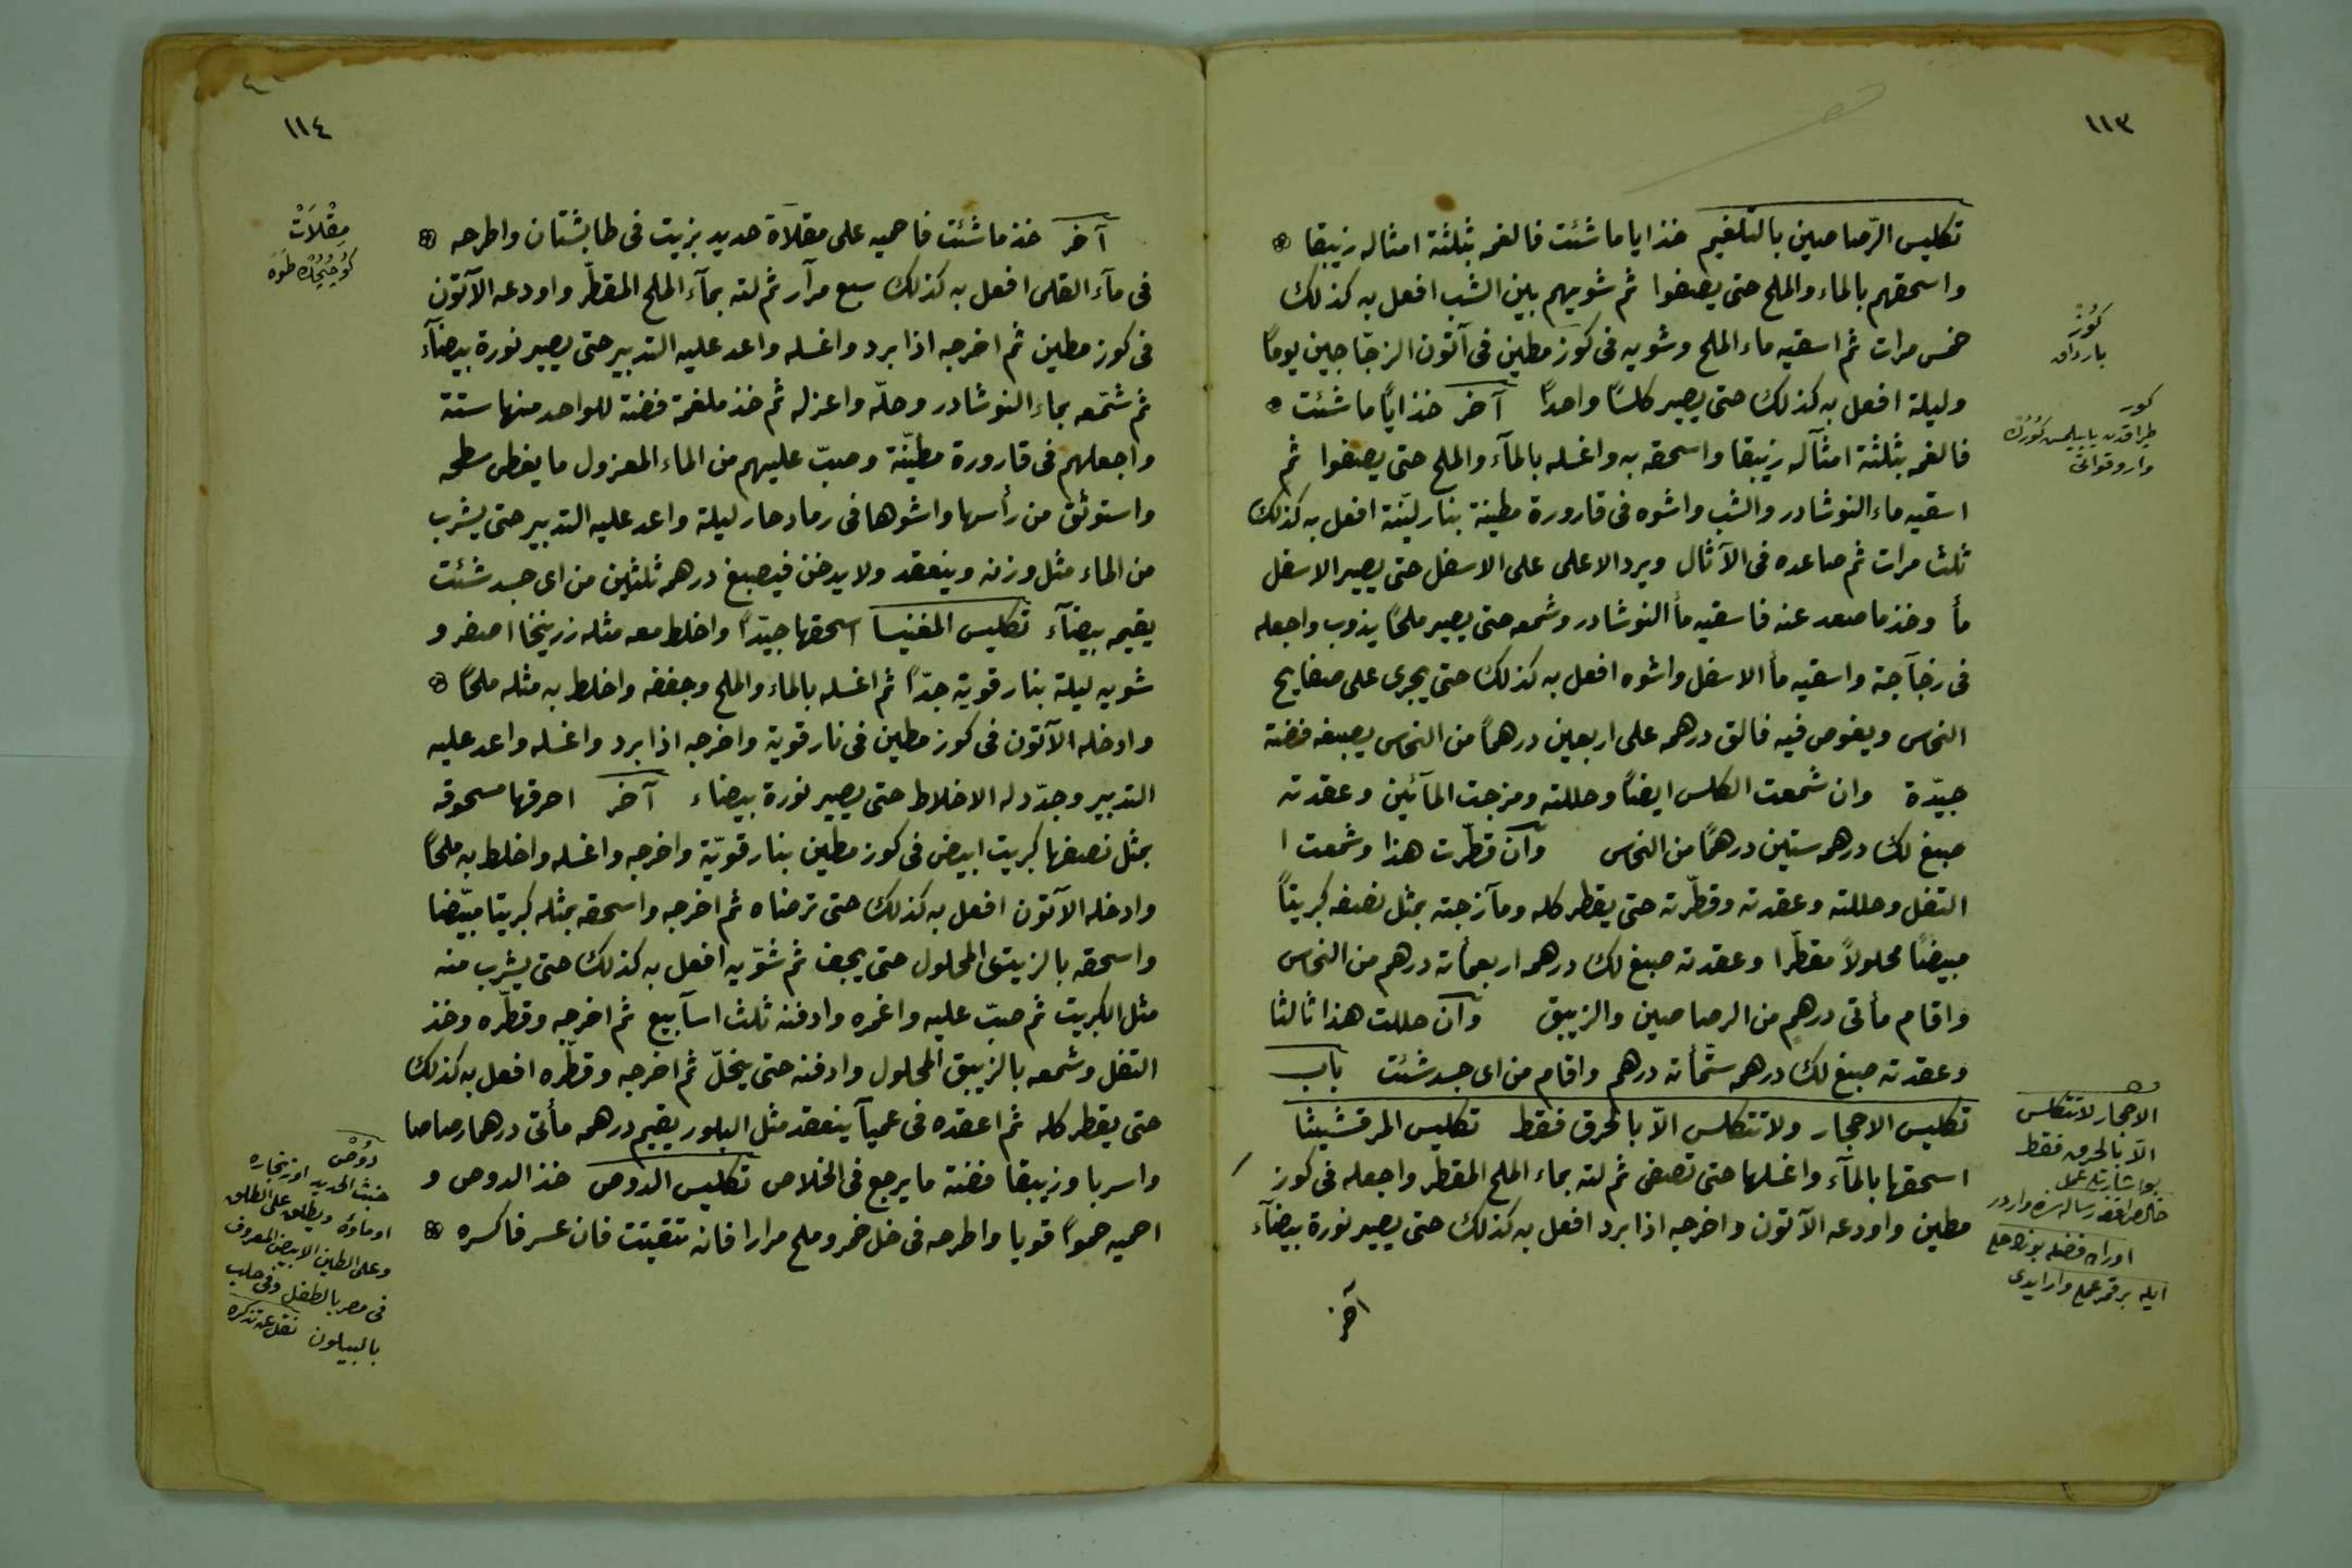 ١١٣
تكليس الرّصاصين بالتلغيم خذ ايا ما شئت فالغمه بثلثة امثاله زيبقا
واسحقهم بالماء والملح حتى يصفوا ثم شويهم بين الشب افعل به كذلك
خمس مرات ثم اسقيه ماء الملح وشويه فى كوز مطين فى آتون الزجّاجين يوماً
وليلة افعل به كذلك حتى يصير كلسًا واحداً آخر خذ اياً ما شئت
فالغمه بثلثة امثآله زيبقا واسحقه به واغسله بالمآء والملح حتى يصفوا ثم
اسقيه ماء النوشادر والشب واشوه فى قارورة مطينة بنار ليّنة افعل به كذلك
ثلث مرات ثم صاعده فى الآثال ويرد الاعلى على الاسفل حتى يصير الاسفل
مأ وخذ ما صعد عنه فاسقيه مأ النوشادر وشمعه حتى يصير ملحًا يذوب واجعله
فى زجآجة واسقيه مأ الاسفل واشوه افعل به كذلك حتى يجرى على صفايح
النحاس ويغوص فيه فالق درهمه على اربعين درهماً من النحاس يصبغه فضة
جيّدة وان شمعت الكلس ايضاً وحللته ومزجت المآئين وعقدته
صبغ لك درهمه ستين درهمًا من النحاس وآن قطّرت هذا وشمعت ا
التفل وحللته وعقدته وقطّرته حتى يقطر كله ومآزجته بمثل نصفه كبريتاً
مبيضًا محلولاً مقطّرا وعقدته صبغ لك درهمه اربعمأته درهم من النحاس
واقام مأتى درهمٍ من الرصاصين والزيبق وآن حللت هذا ثالثا
وعقدته صبغ لك درهمه ستّمأته درهم واقام من اى جسد شئت باب
تكليس الاحجار ولا تتكلس الاّ بالحرق فقط تكليس المرقشيثا
اسحقها بالمآء واغسلها حتى تصفى ثم لته بماء الملح المقطر واجعله فى كوز
مطين واودعه الآتون واخرجه اذا برد افعل به كذلك حتى يصير نورة بيضآء
آخر
كُوز
بارداق
كور
الاحجار لا تتكلس
الاّ بالحرق فقط
١١٤
آخر خذ ما شئت فاحميه على مقلاة حديد بزيت فى طابشتان واطرحه
فى مآء القلى افعل به كذلك سبع مرآر ثم لته بمآء الملح المقطّر واودعه الآتون
فى كوز مطين ثم اخرجه اذا برد واغسله واعد عليه التدبير حتى يصير نورة بيضآء
ثم شمّعه بماء النوشادر وحلّه واعزله ثم خذ ملغمة فضة للواحد منها ستة
واجعلهم فى قارورة مطيّنة وصبّ عليهم من الماء المعزول ما يغطى سطحه
واستوثق من رأسها واشوها فى رماد حار ليلة واعد عليه التدبير حتى يشرب
من الماء مثل وزنه وينعقد ولا يدخن فيصبغ درهمه ثلثين من اى جسد شئت
يقيمه بيضآء تكليس المغنيسا اسحقها جيّداً واخلط معه مثله زرنيخا اصفر و
شويه ليلة بنار قوية جدّاً ثم اغسله بالماء والملح وجففه واخلط به مثله ملحاً
وادخله الآتون فى كوز مطين فى نار قوية واخرجه اذا برد واغسله واعد عليه
التدبير وجدّد له الاخلاط حتى يصير نورة بيضاء آخر احرقها مسحوقه
بمثل نصفها كبريت ابيض فى كوز مطين بنار قويّة واخرجه واغسله واخلط به ملحاً
وادخله الآتون افعل به كذلك حتى ترضاه ثم اخرجه واسحقه بمثله كبريتا مبيّضا
واسحقه بالزيبق المحلول حتى يجف ثم شوّيه افعل به كذلك حتى يشرب منه
مثل الكبريت ثم صبّ عليه واغمره وادفنه ثلث اسآبيع ثم اخرجه وقطّره وخذ
التفل وشمعه بالزيبق المحلول وادفنه حتى ينحلّ ثم اخرجه وقطّره افعل به كذلك
حتى يقطر كله ثم اعقده فى عميآ ينعقد مثل البلور يقيم درهمه مأتى درهما رصاصا
واسربا وزيبقا فضة ما يرجع فى الخلاص تكليس الدوص خذ الدوص و
احميه حمواً قويا واطرحه فى خل خمر وملح مرارا فانه تتفتت فان عسر فاكسره
مِقْلَاتْ
دوُصْ
خبث الحديد او زنجاره
او ماؤه ويطلق على الطلق
وعلى الطين الابيض المعروف
فى مصر بالطفل وفى حلب
بالبيلون نقل عن تذكره